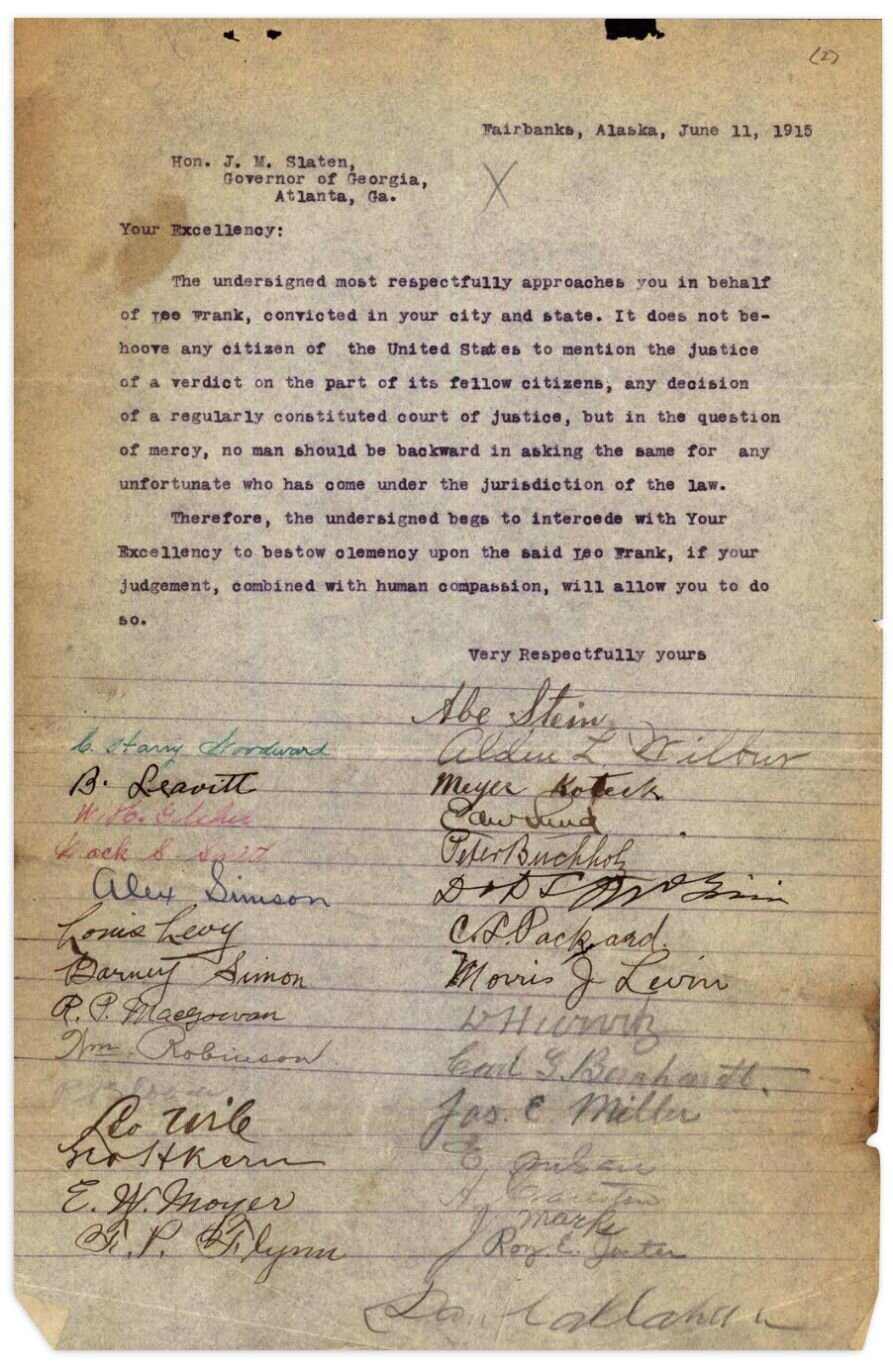 (2)
Fairbanks, Alaska, June 11, 1915
Hon. J. M. Slaten,
Governor of Georgia,
Atlanta, Ga.
X
Your Excellency:
The undersigned most respectfully approaches you in behalf
of Leo Frank, convicted in your city and state. It does not be-
hoove any citizen of the United States to mention the justice
of a verdict on the part of its fellow citizens, any decision
of a regularly constituted court of justice, but in the question
of mercy, no man should be backward in asking the same for any
unfortunate who has come under the jurisdiction of the law.
Therefore, the undersigned begs to intercede with Your
Excellency to bestow clemency upon the said Leo Frank, if your
judgement, combined with human compassion, will allow you to do
so.
Very Respectfully yours
Abe Stein
C. Harry Woodward
Alden L. Wilbur
B. Leavitt
Meyer Koteck
W. H.
Mack S.
Peter Buchholz
Alex Simson
Louis Levy
C. L. Packard.
Barney Simon
Morris J Levin
R. P. Macgowan
Wm. Robinson.
Carl G. Bernhardt.
Leo Wile
Jas. E Miller
Geo H Kern
E.
E. W. Moyer
A.
J Marks
F. P. Flynn
Roy E. Foster
Dan Callahan